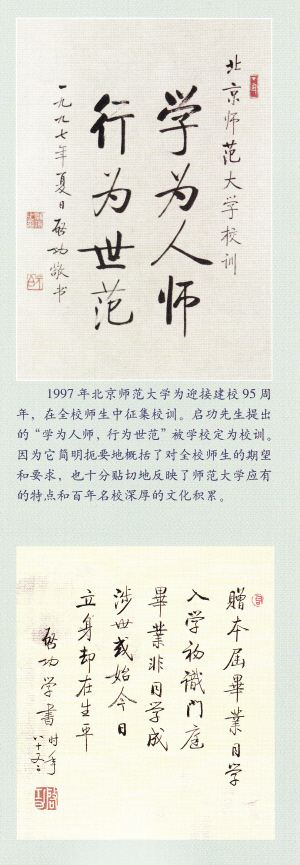 北京师范大学校训
学为人师
行为世范
一九九七年夏日 啟功敬书
1997年北京师范大学为迎接建校95周
年，在全校师生中征集校训。启功先生提出
的“学为人师，行为世范”被学校定为校训。
因为它简明扼要地概括了对全校师生的期望
和要求，也十分贴切地反映了师范大学应有
的特点和百年名校深厚的文化积累。
贈本届畢業同学
入学初識門庭
畢業非同学成
涉世或始今日
立身却在生平
啟功学書 时年
八十